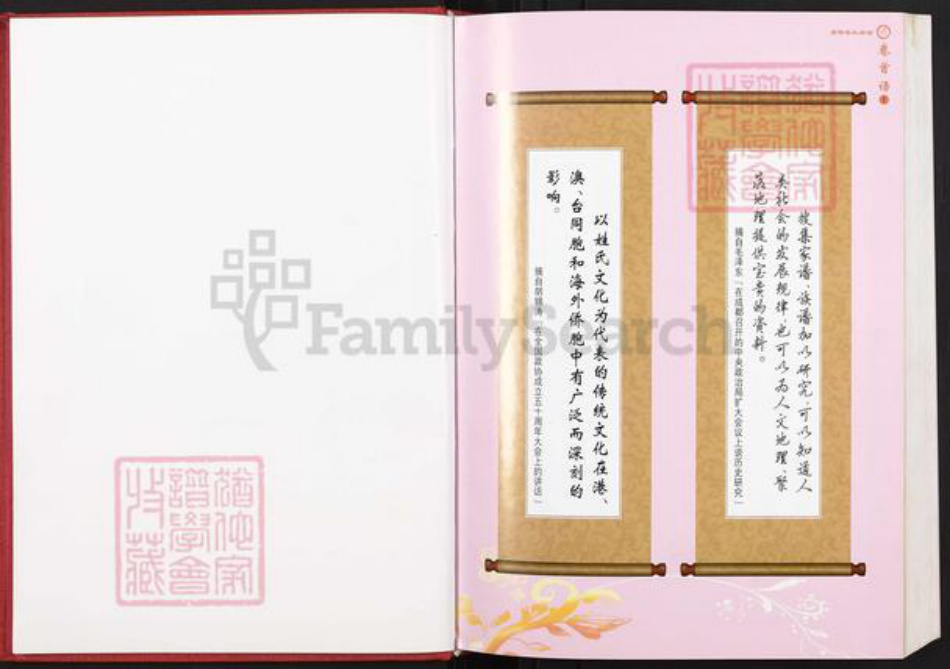 卷首语
搜集家谱、族谱加以研究，可以知道人
类社会的发展规律，也可以为人文地理、聚
落地理提供宝贵的资料。
摘自毛泽东《在成都召开的中央政治局扩大会议上谈历史研究》
以姓氏文化为代表的传统文化在港、
澳、台同胞和海外侨胞中有广泛而深刻的
影响。
摘自胡锦涛《在全国政协成立五十周年大会上的讲话》
FamilySearch